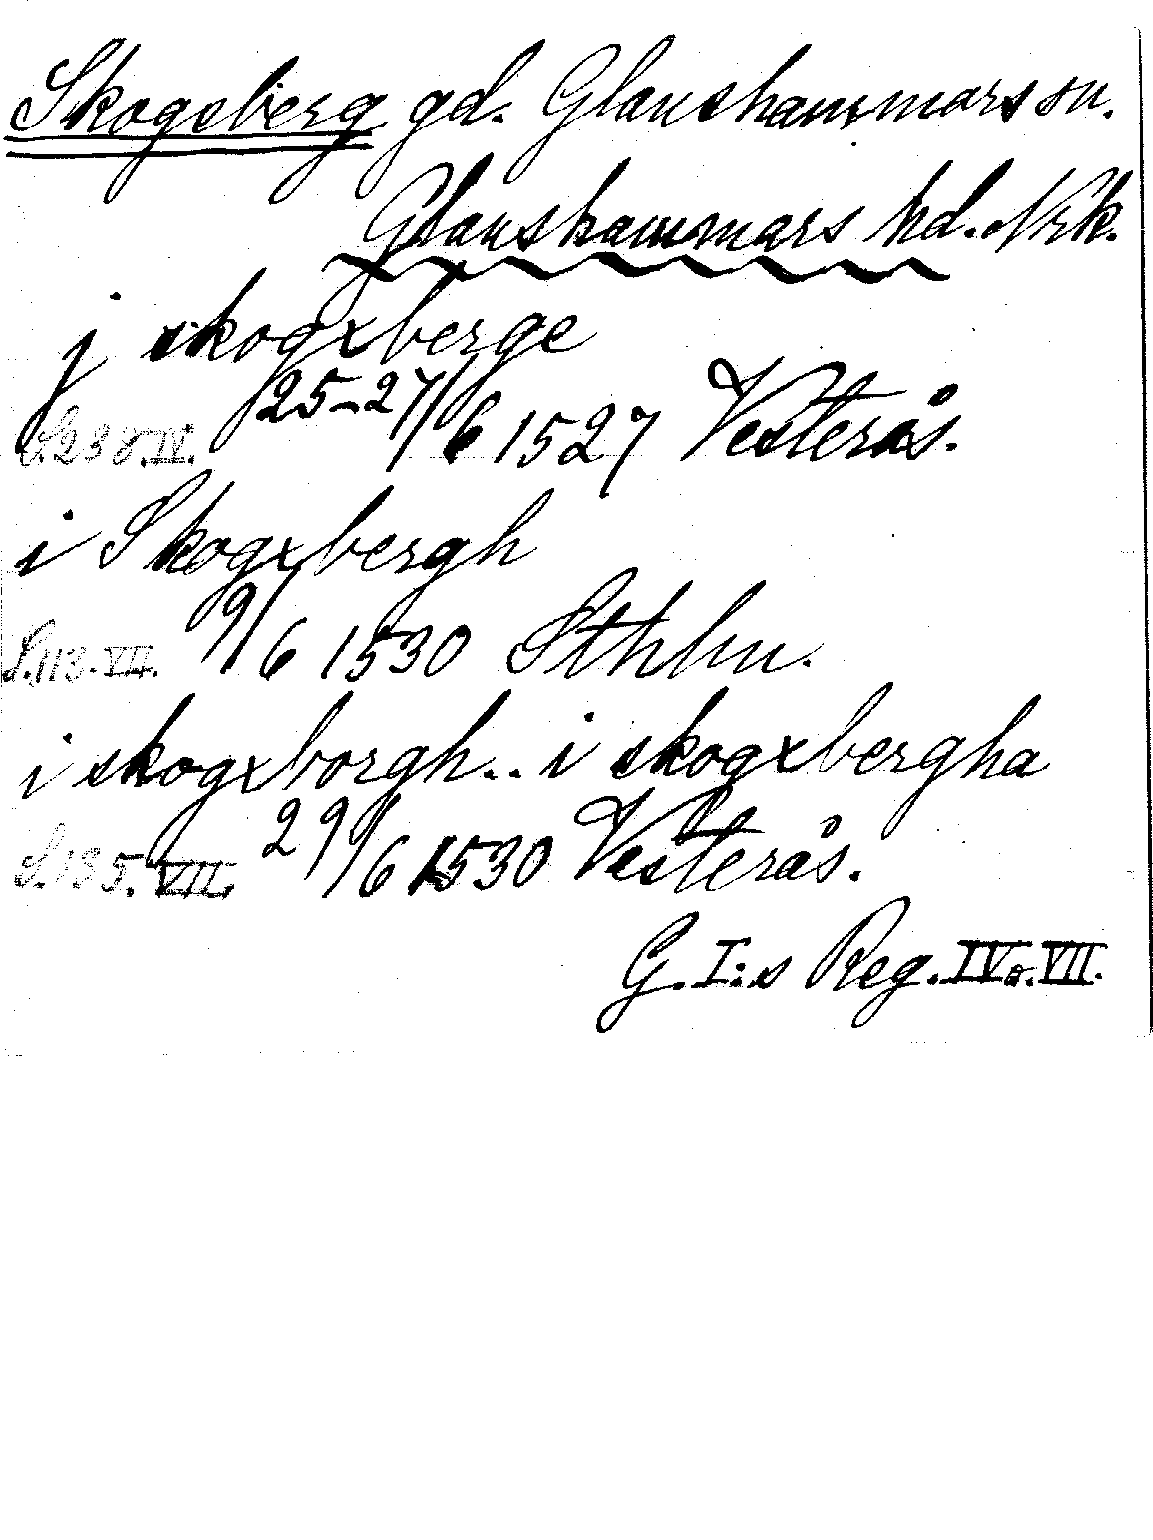 Skogsberg gd. Glanshammars sn.
Glanshammars hd. Nrk.
j skogxberge
S.238.IV. 25-27/6 1527 Vesterås.
i Skogxbergh
S.113.VII. 9/6 1530 Sthlm.
i skogxborgh.. i skogxbergha
S.135.VII. 29/6 1530 Vesterås.
G.I:s Reg. IV o. VII.